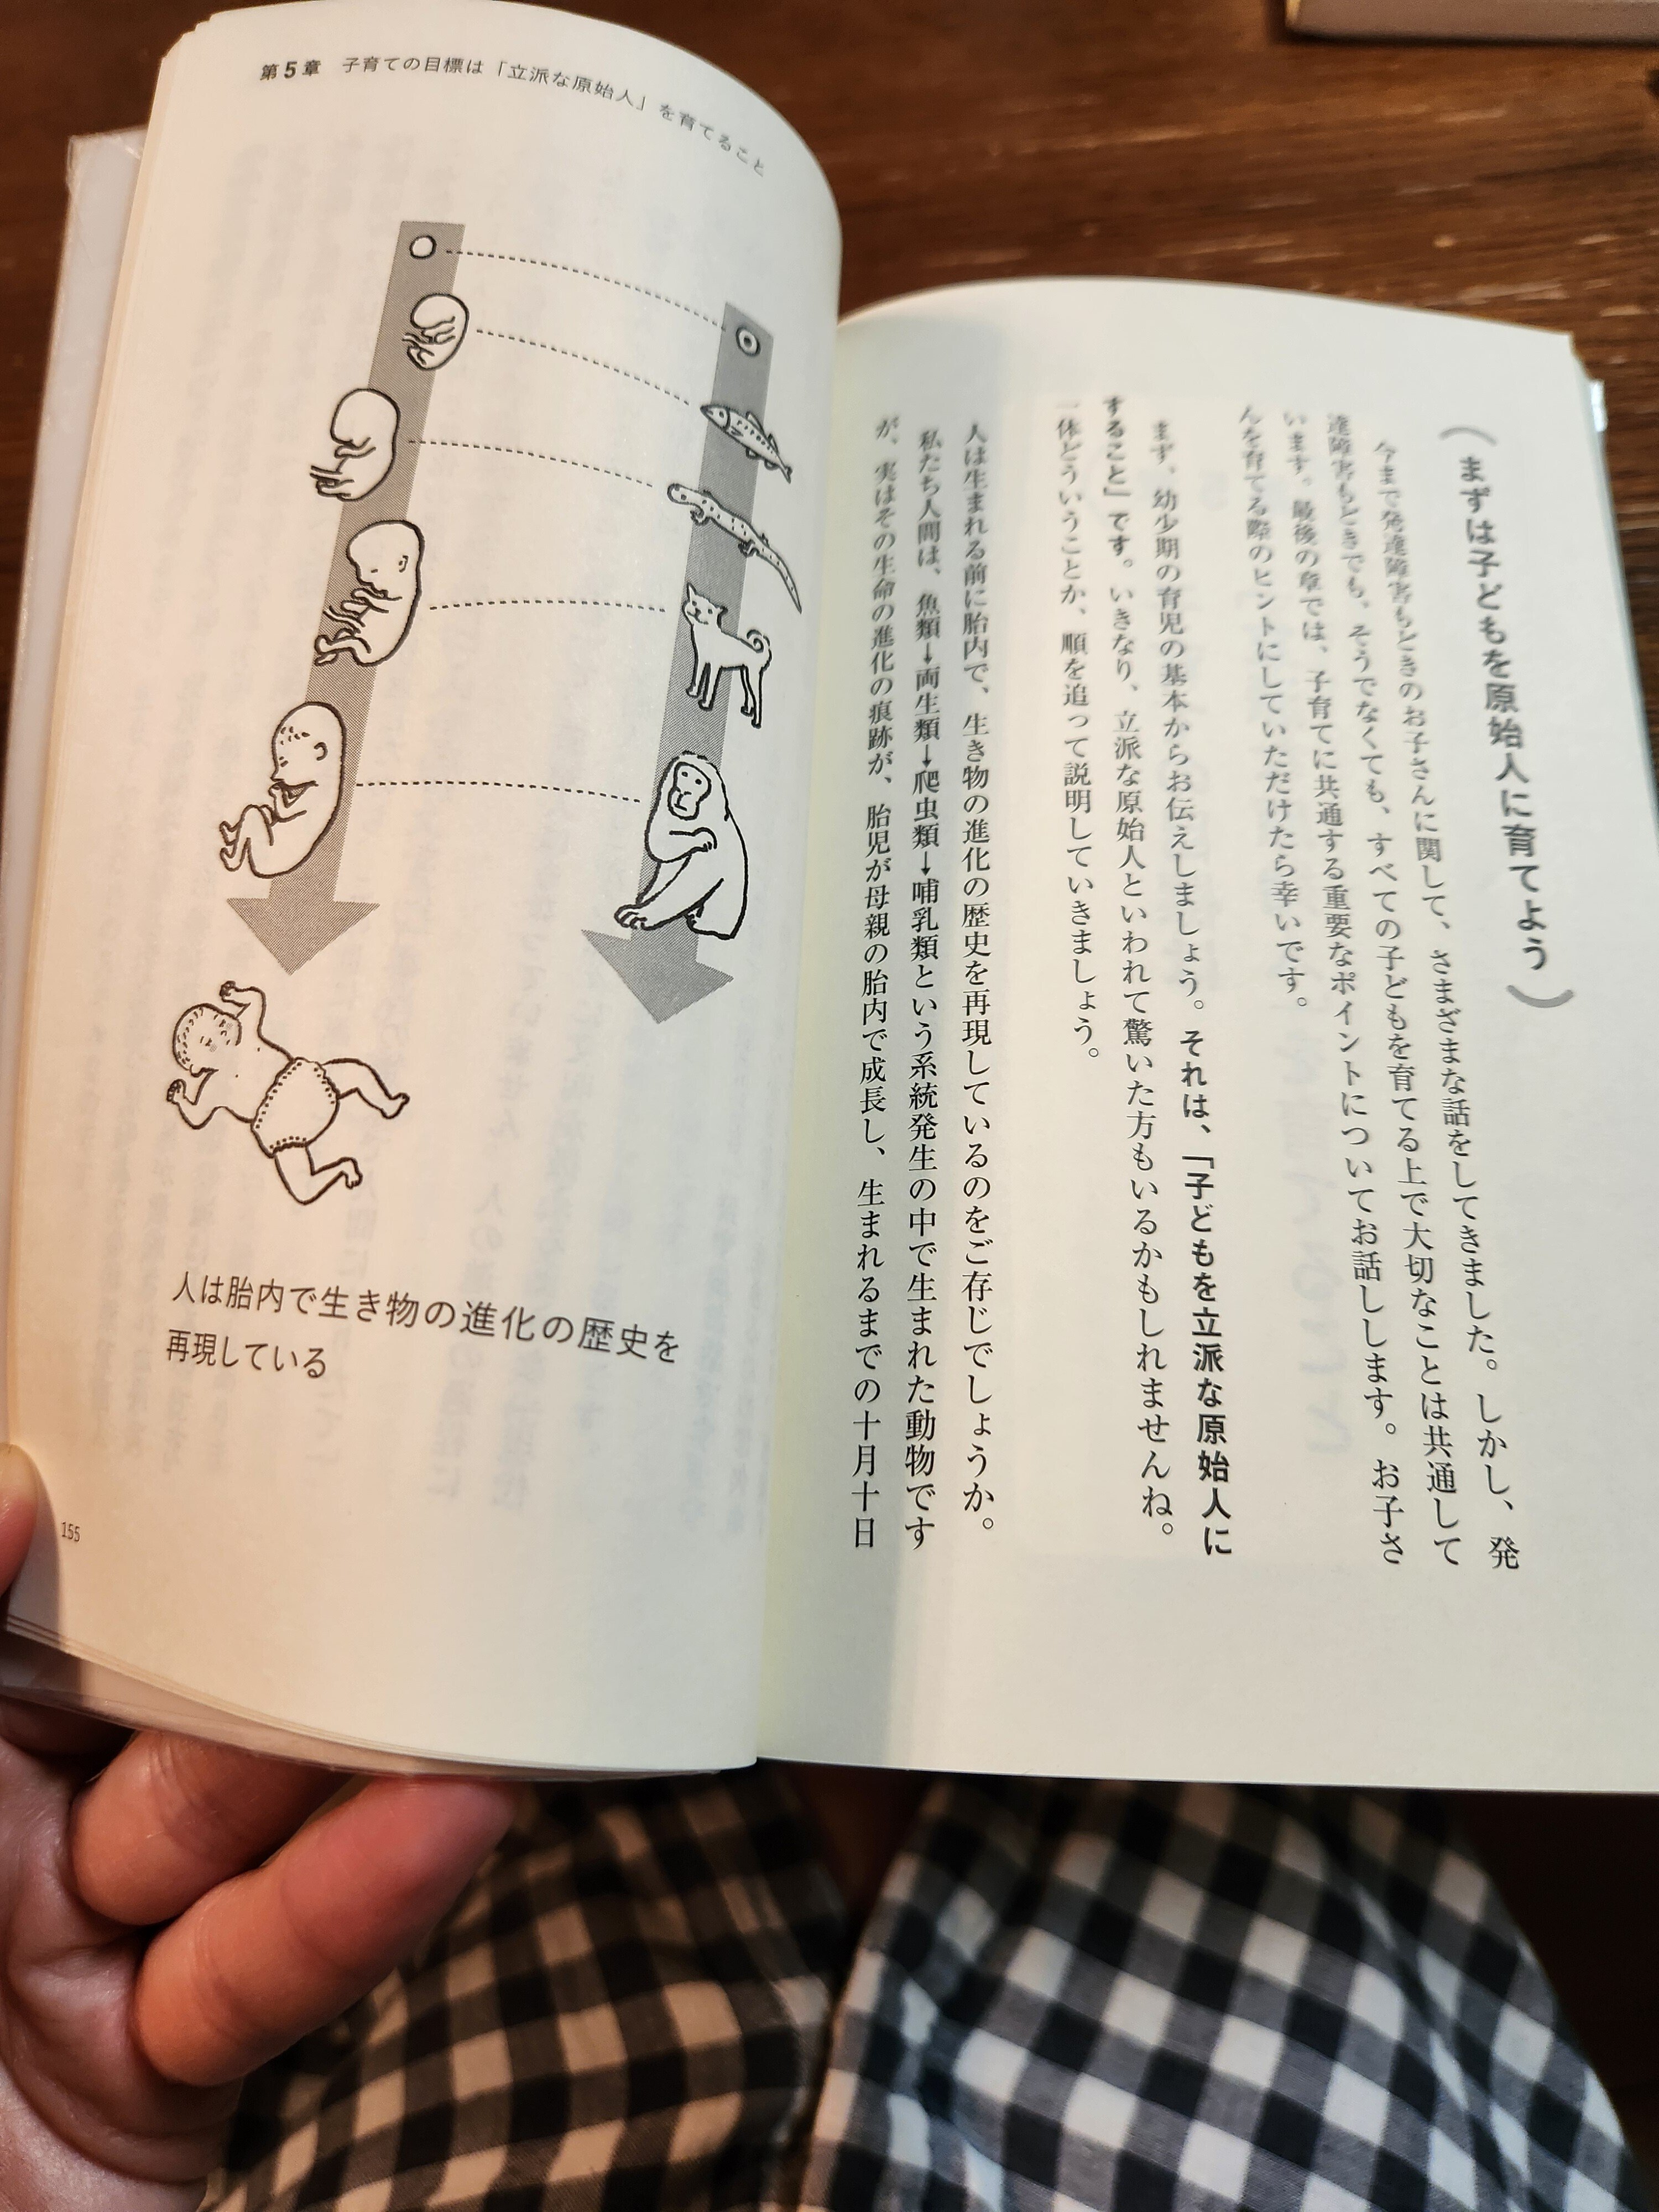 （まずは子どもを原始人に育てよう）
今まで発達障害もどきのお子さんに関して、さまざまな話をしてきました。しかし、発
達障害もどきでも、そうでなくても、すべての子どもを育てる上で大切なことは共通して
います。最後の章では、子育てに共通する重要なポイントについてお話しします。お子さ
んを育てる際のヒントにしていただけたら幸いです。
まず、幼少期の育児の基本からお伝えしましょう。それは、「子どもを立派な原始人に
すること」です。いきなり、立派な原始人といわれて驚いた方もいるかもしれませんね。
一体どういうことか、順を追って説明していきましょう。
人は生まれる前に胎内で、生き物の進化の歴史を再現しているのをご存じでしょうか。
私たち人間は、魚類→両生類→爬虫類→哺乳類という系統発生の中で生まれた動物です
が、実はその生命の進化の痕跡が、胎児が母親の胎内で成長し、生まれるまでの十月十日
第5章 子育ての目標は「立派な原始人」を育てること
人は胎内で生き物の進化の歴史を
再現している
155